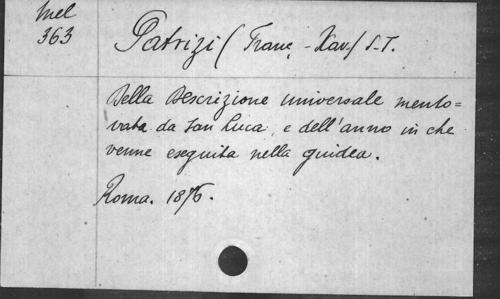 Mel
363
Patrizi (Franç - Xav.) S-J.
Della Descrizione universale mento=
vata da San Luca, e dell'anno in che
venne eseguita nella guidea.
Roma. 1876.